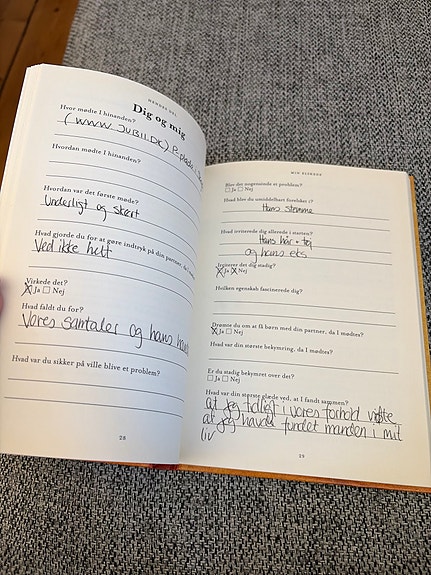 HENDES DEL
Dig og mig
Hvor mødte I hinanden?
(WWW.JUBII.DK)
Hvordan mødte I hinanden?
Hvordan var det første møde?
Underligt og skørt
Hvad gjorde du for at gøre indtryk på din partner, det
Ved ikke helt
Virkede det?
Ja Nej
Hvad faldt du for?
Vores samtaler og hans
Hvad var du sikker på ville blive et problem?
28
MIN ELSKEDE
Blev det nogensinde et problem?
Ja Nej
Hvad blev du umiddelbart forelsket i?
Hans stemme
Hvad irriterede dig allerede i starten?
Hans hår + tøj
og hans eks
Irriterer det dig stadig?
Ja Nej
Hvilken egenskab fascinerede dig?
Drømte du om at få børn med din partner, da I mødtes?
Ja Nej
Hvad var din største bekymring, da I mødtes?
Er du stadig bekymret over det?
Ja Nej
Hvad var din største glæde ved, at I fandt sammen?
at jeg tidligt i vores forhold vidste
at jeg havde fundet manden i mit
liv
29